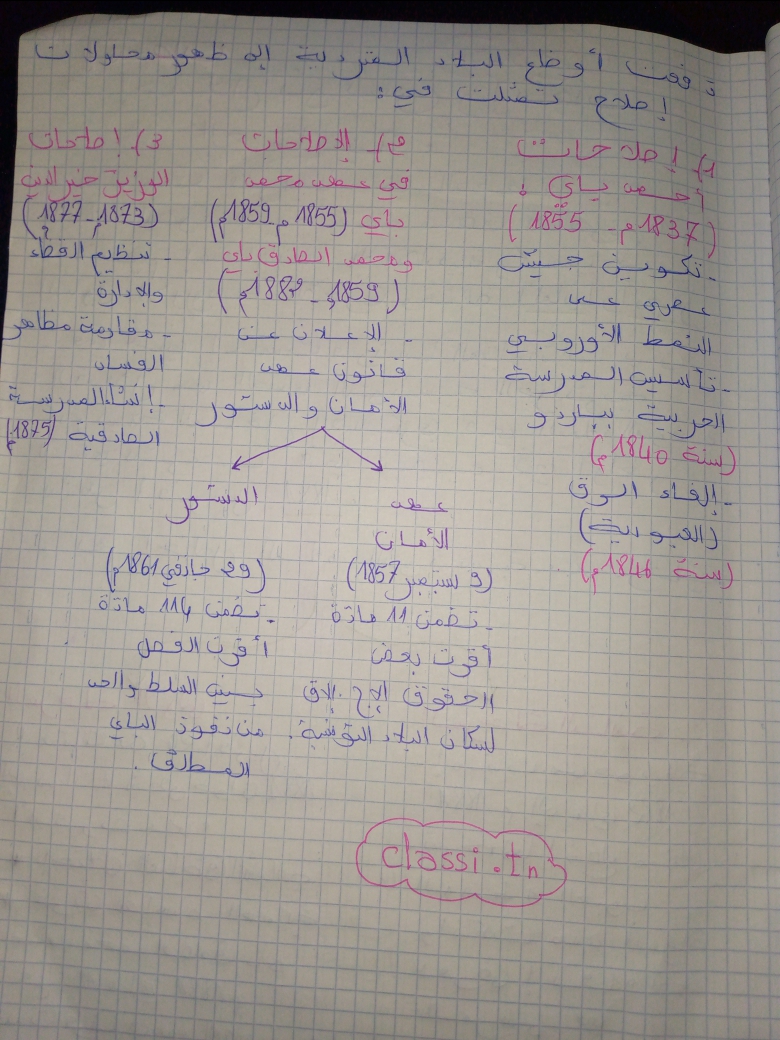 دفعت أوضاع البلاد المتردية إلى ظهور محاولات
إصلاح تمثلت في:
1) إصلاحات
أحمد باي:
(1837م - 1855)
- تكوين جيش
عصري على
النمط الأوروبي
- تأسيس المدرسة
الحربية بباردو
(سنة 1840م)
- إلغاء الرق
(العبودية)
(سنة 1846م)
2) الإصلاحات
في عهد محمد
باي (1855م - 1859م)
ومحمد الصادق باي
(1859م - 1882م)
- الإعلان عن
قانون عهد
الأمان والدستور
عهد
الأمان
(9 سبتمبر 1857)
- تضمن 11 مادة
أقرت بعض
الحقوق
لسكان البلاد التونسية.
الدستور
(29 جانفي 1861م)
- تضمن 114 مادة
أقرت الفصل
بين السلط والحد
من نفوذ الباي
المطلق.
3) إصلاحات
الوزير خير الدين
(1873م - 1877م)
- تنظيم القضاء
والإدارة
- مقاومة مظاهر
الفساد
- إنشاء المدرسة
الصادقية (1875م)
classi.tn